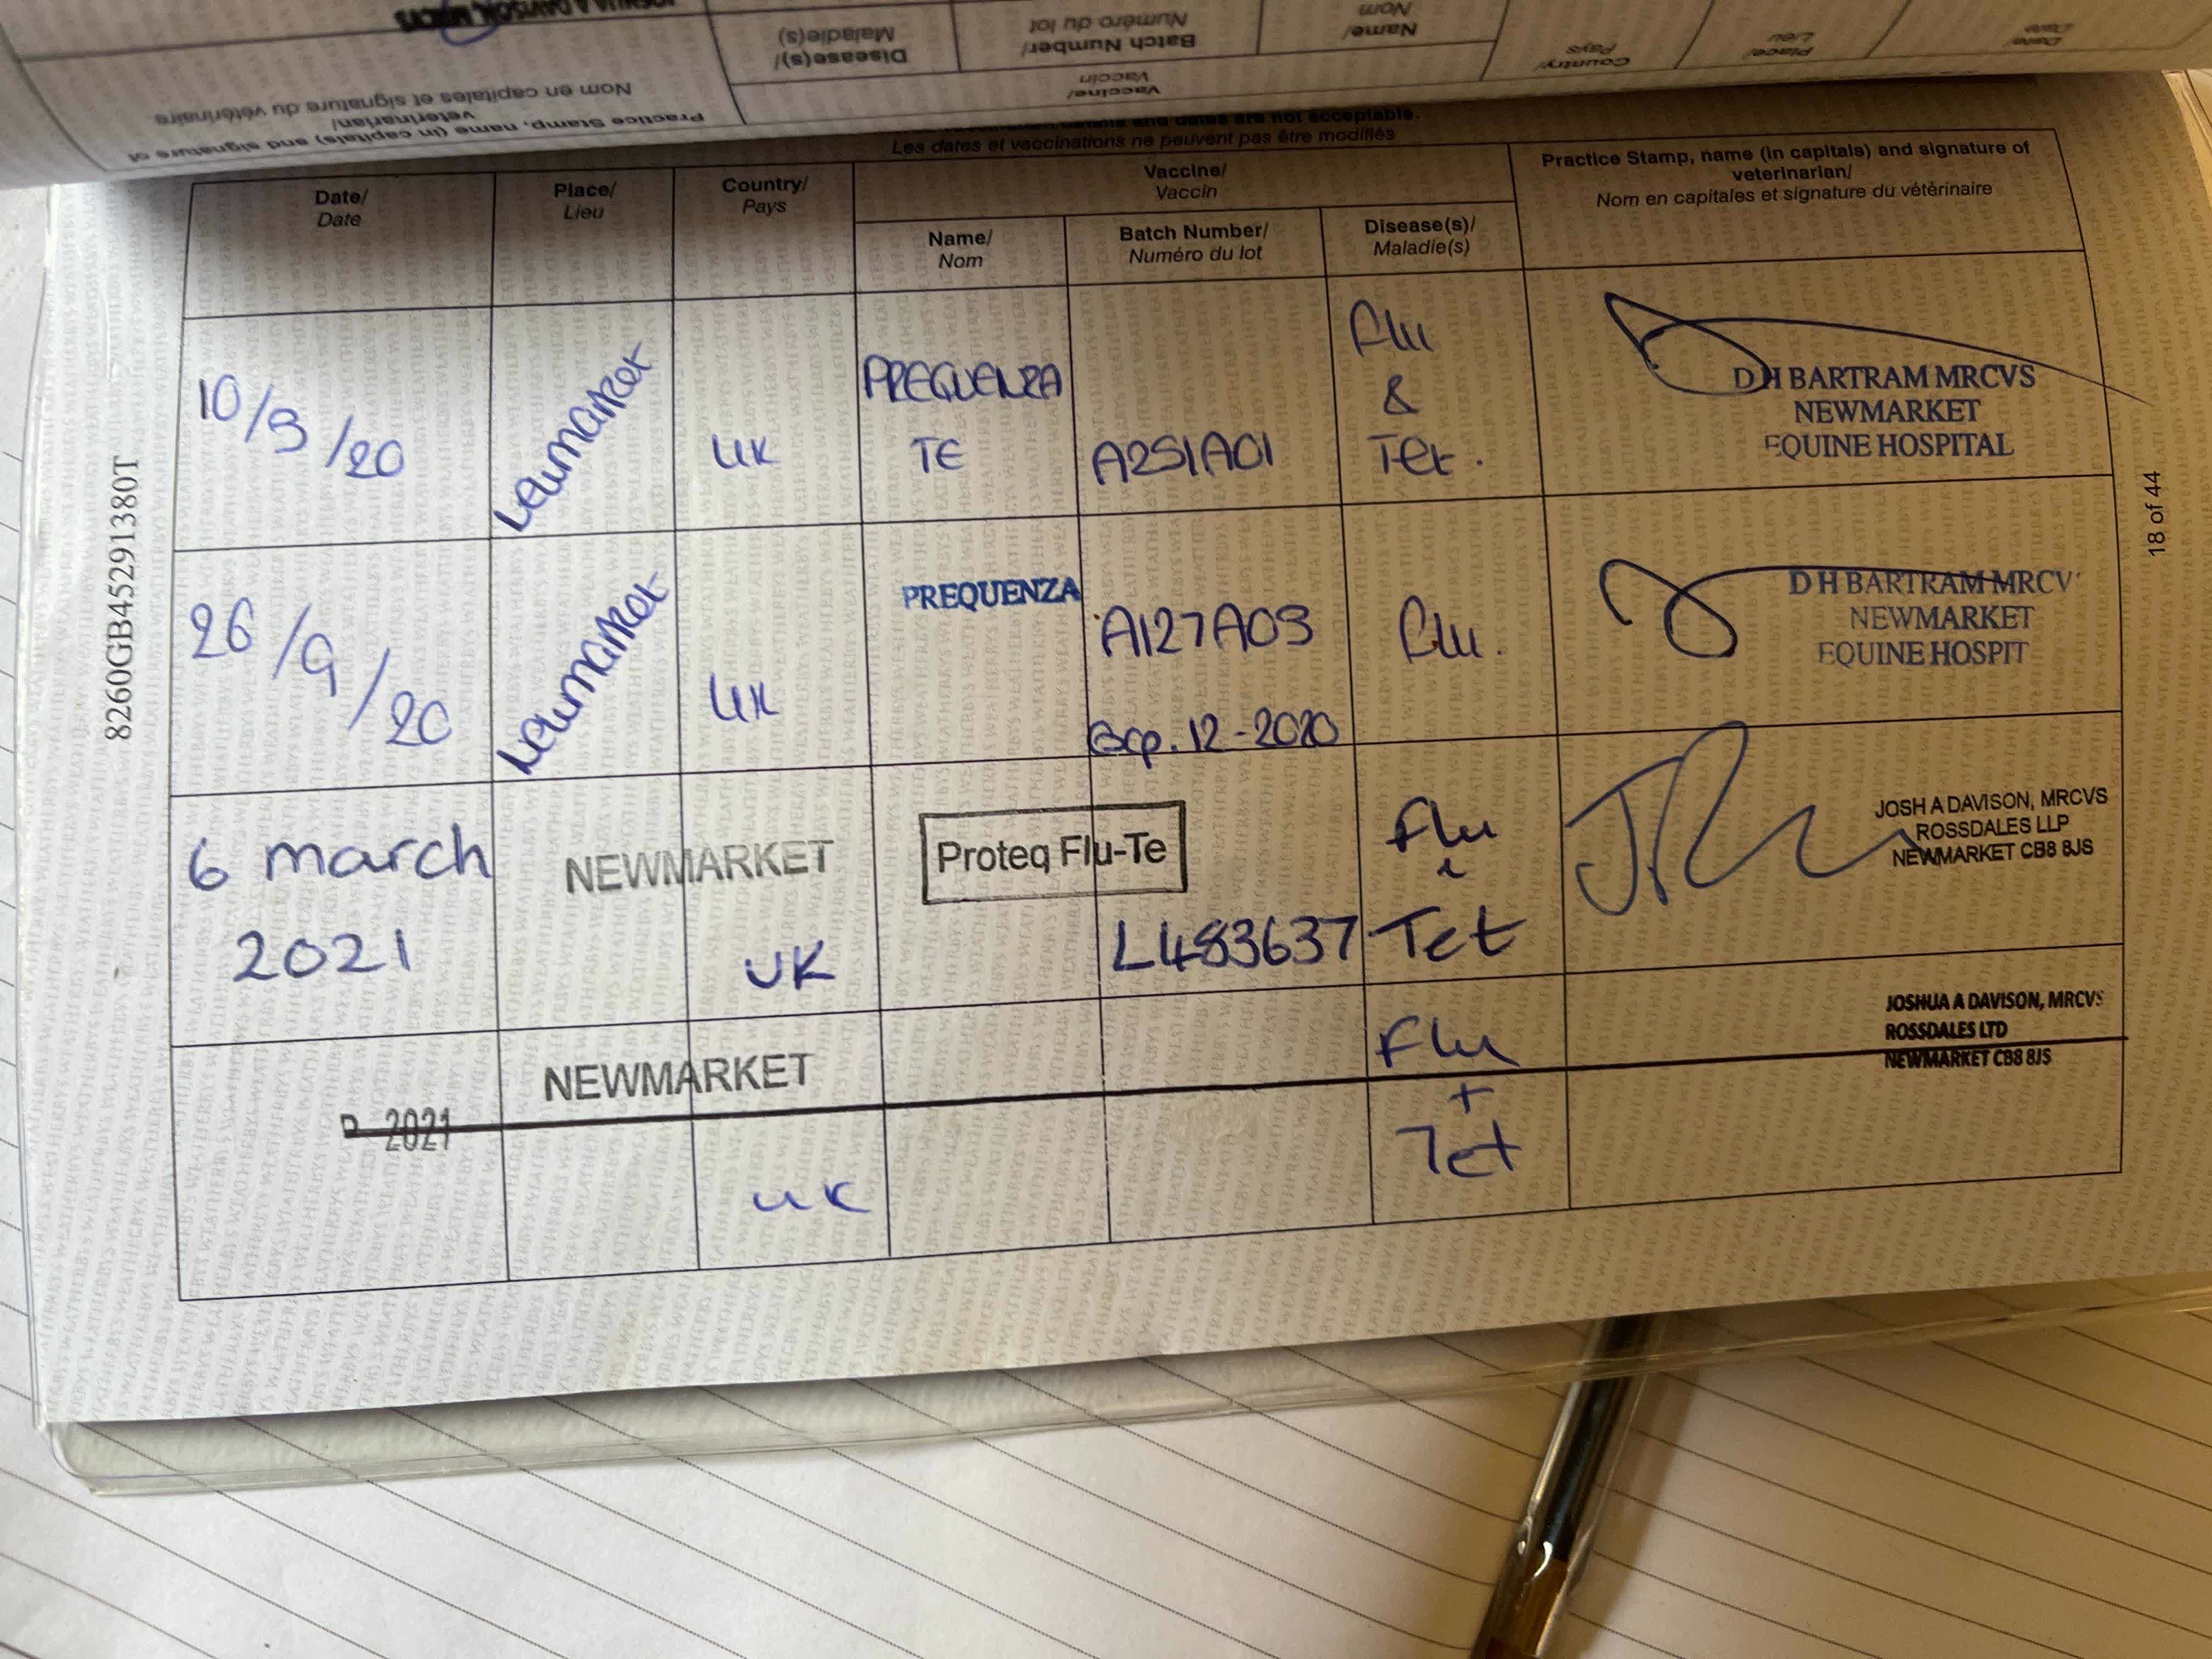 JOSHUA A DAVISON, MRCVS
Disease(s)/
Maladie(s)
Batch Number/
Numéro du lot
Name/
Nom
Country/
Pays
Place/
Lieu
Date/
Date
Vaccine/
Vaccin
Practice Stamp, name (in capitals) and signature of
veterinarian/
Nom en capitales et signature du vétérinaire
and dates are not acceptable.
Les dates et vaccinations ne peuvent pas être modifiés
Date/
Date
Place/
Lieu
Country/
Pays
Vaccine/
Vaccin
Name/
Nom
Batch Number/
Numéro du lot
Disease(s)/
Maladie(s)
Practice Stamp, name (in capitals) and signature of
veterinarian/
Nom en capitales et signature du vétérinaire
Newmarket
UK
PREQUENZA
TE
Flu
&
Tet.
D H BARTRAM MRCVS
NEWMARKET
EQUINE HOSPITAL
26/9/20
Newmarket
UK
PREQUENZA
A127A03
Exp. 12-2020
Flu.
D H BARTRAM MRCV
NEWMARKET
EQUINE HOSPIT
6 march
2021
NEWMARKET
UK
Proteq Flu-Te
L483637
Flu
Tet
JOSH A DAVISON, MRCVS
ROSSDALES LLP
NEWMARKET CB8 8JS
2021
NEWMARKET
UK
Flu
+
Tet
JOSHUA A DAVISON, MRCVS
ROSSDALES LTD
NEWMARKET CB8 8JS
8260GB45291380T
18 of 44